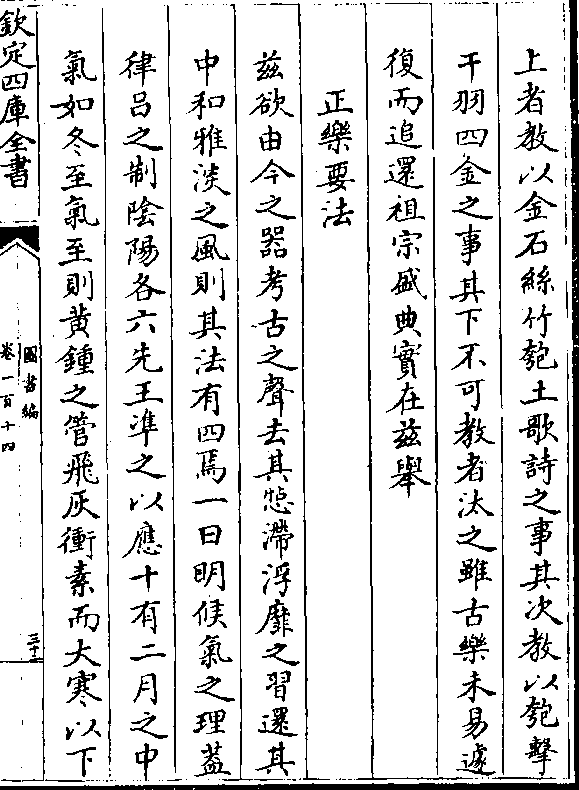 上者教以金石絲竹匏土歌詩之事其次教以匏擊
干羽四金之事其下不可教者汰之雖古樂未易遽
復而追還祖宗盛典實在兹舉
正樂要法
兹欲由今之器考古之聲去其惉滯浮靡之習還其
中和雅淡之風則其法有四焉一曰明候氣之理葢
律呂之制陰陽各六先王凖之以應十有二月之中
氣如冬至氣至則黄鍾之管飛灰衝素而大寒以下
欽定四庫全書
圖書編
卷一百十四
三十二